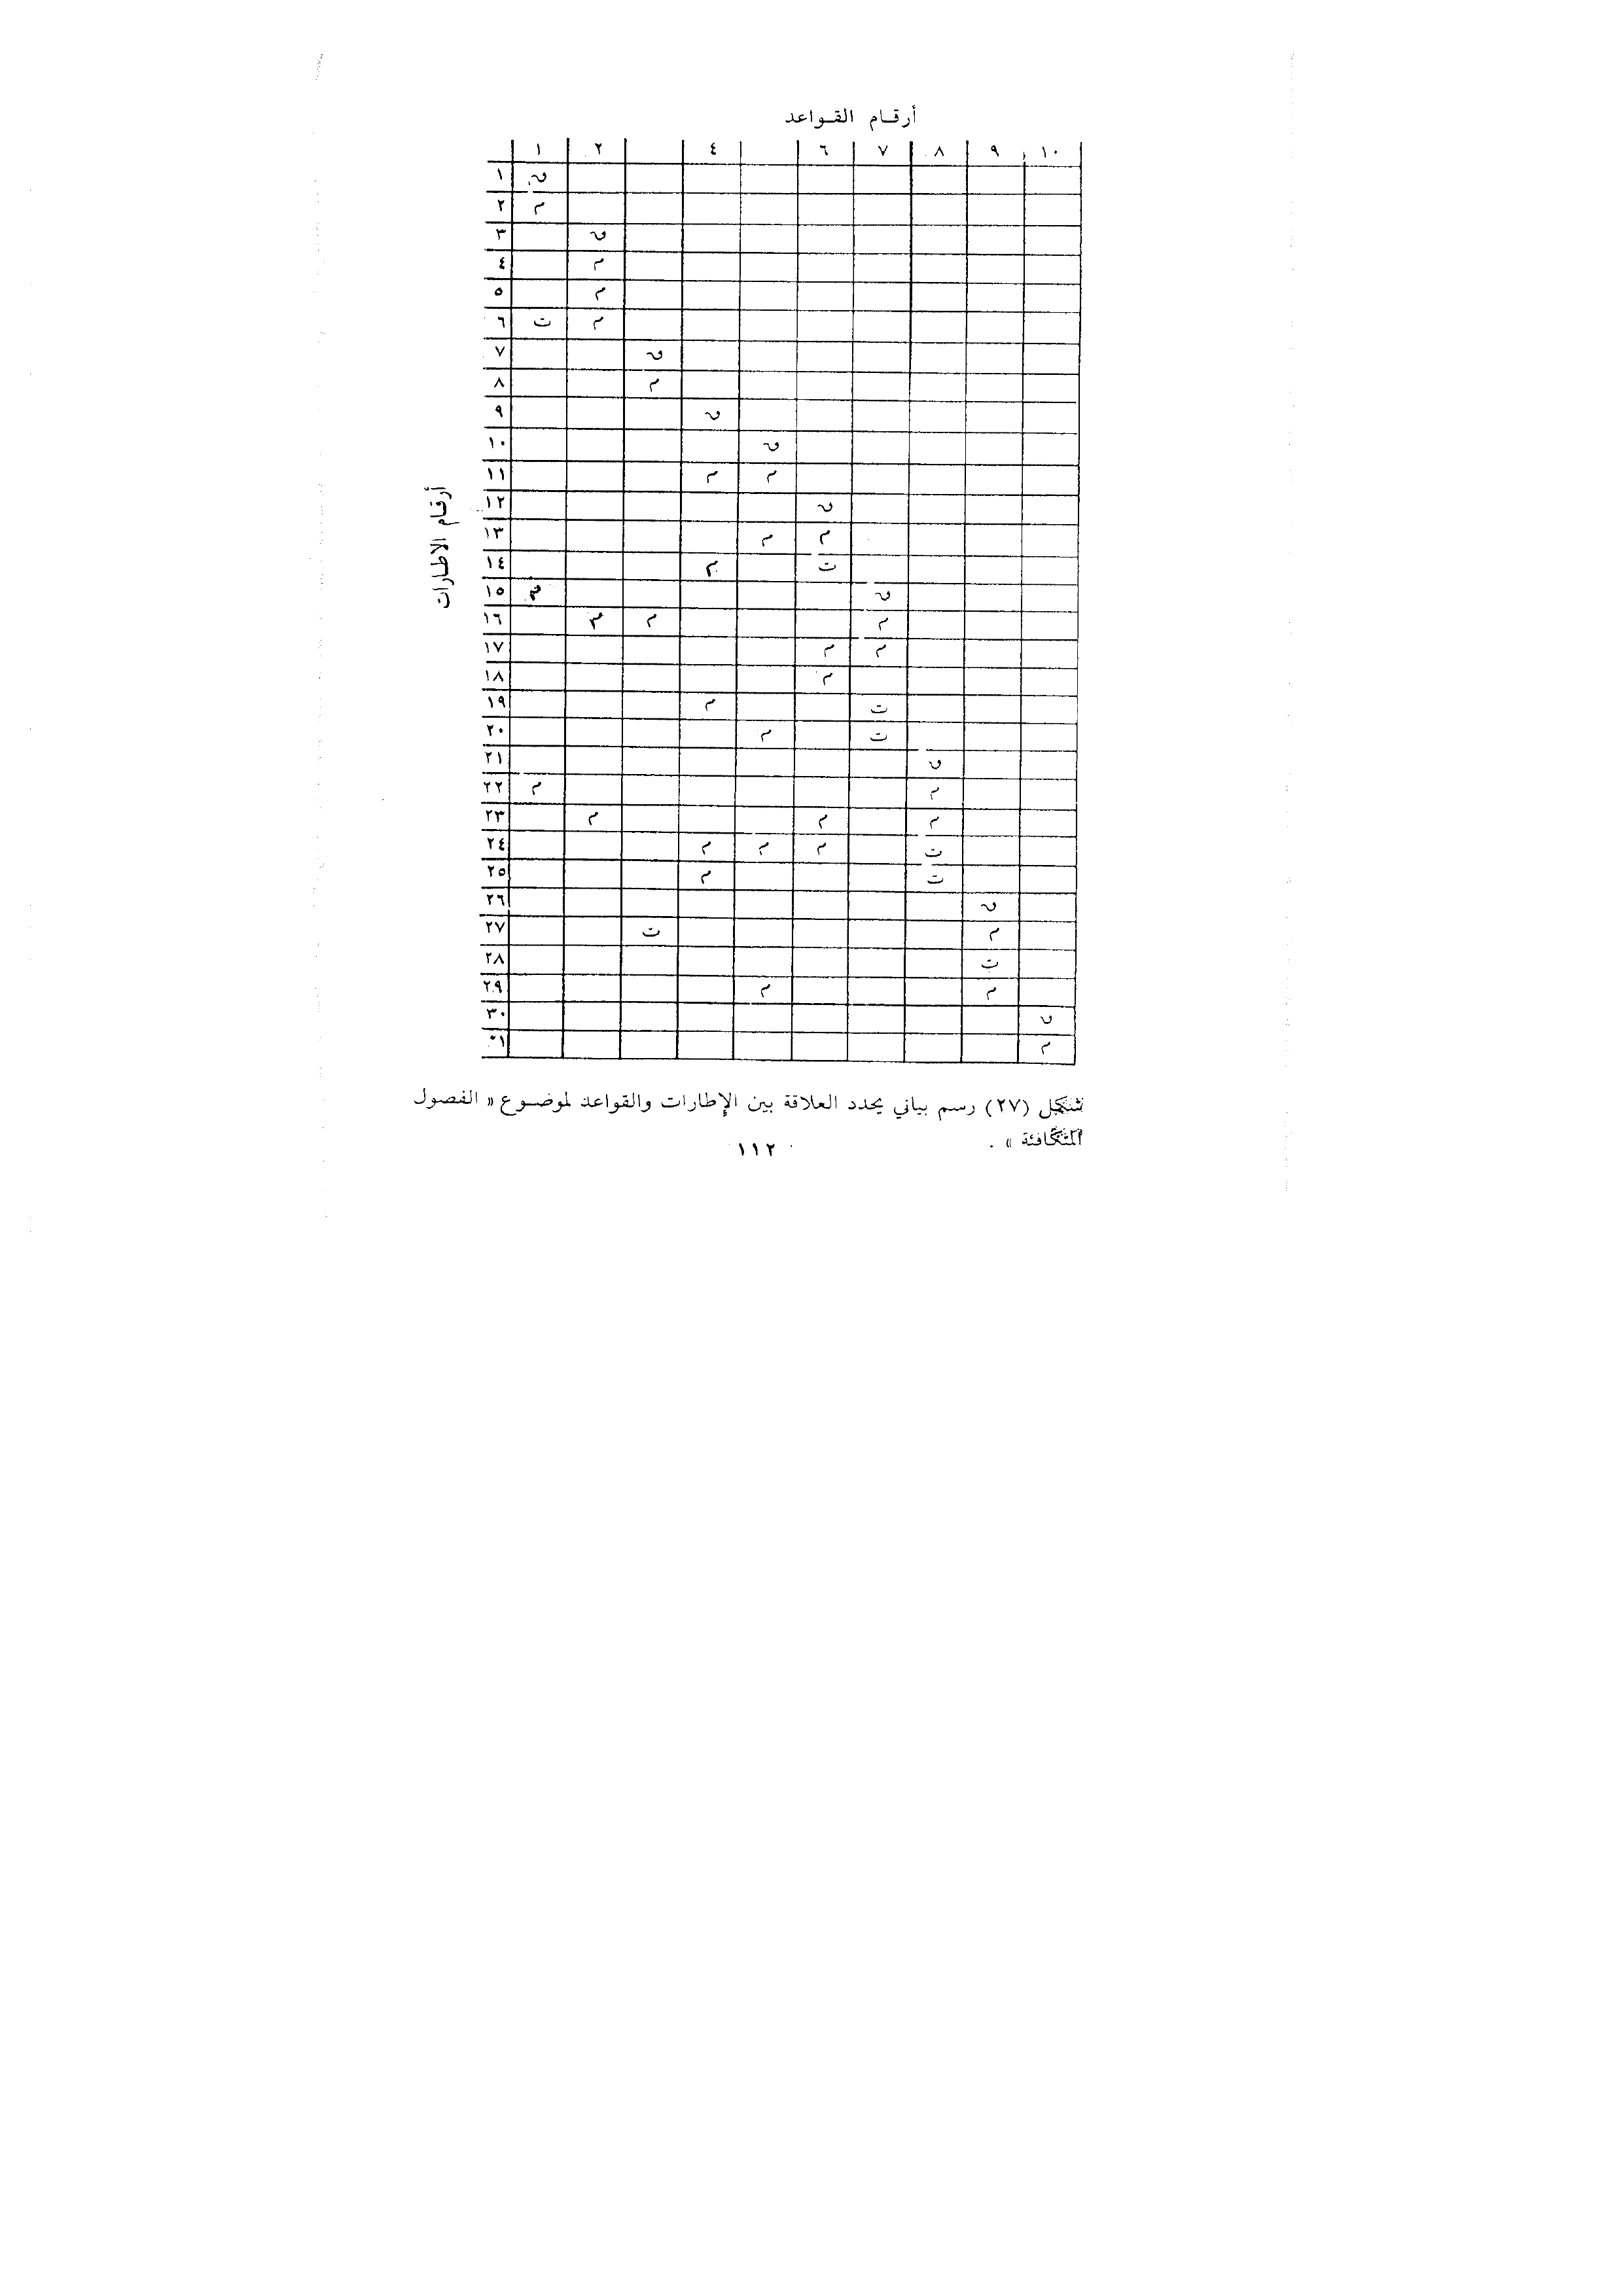 أرقـام القـواعد
١ ٢ ٤ ٦ ٧ ٨ ٩ ١٠
أرقـام الاطـارات
١ ق
٢ م
٣ ق
٤ م
٥ م
٦ ت م
٧ ق
٨ م
٩ ق
١٠ ق
١١ م م
١٢ ق
١٣ م م
١٤ م ت
١٥ م ق
١٦ م م م
١٧ م م
١٨ م
١٩ م ت
٢٠ م ت
٢١ ق
٢٢ م م
٢٣ م م م
٢٤ م م م ت
٢٥ م ت
٢٦ ق
٢٧ ت م
٢٨ ت
٢٩ م م
٣٠ ق
٣١ م
شكل (٢٧) رسم بياني يحدد العلاقة بين الإطارات والقواعد لموضـوع « الفصول
المتكافئة » .
١١٢